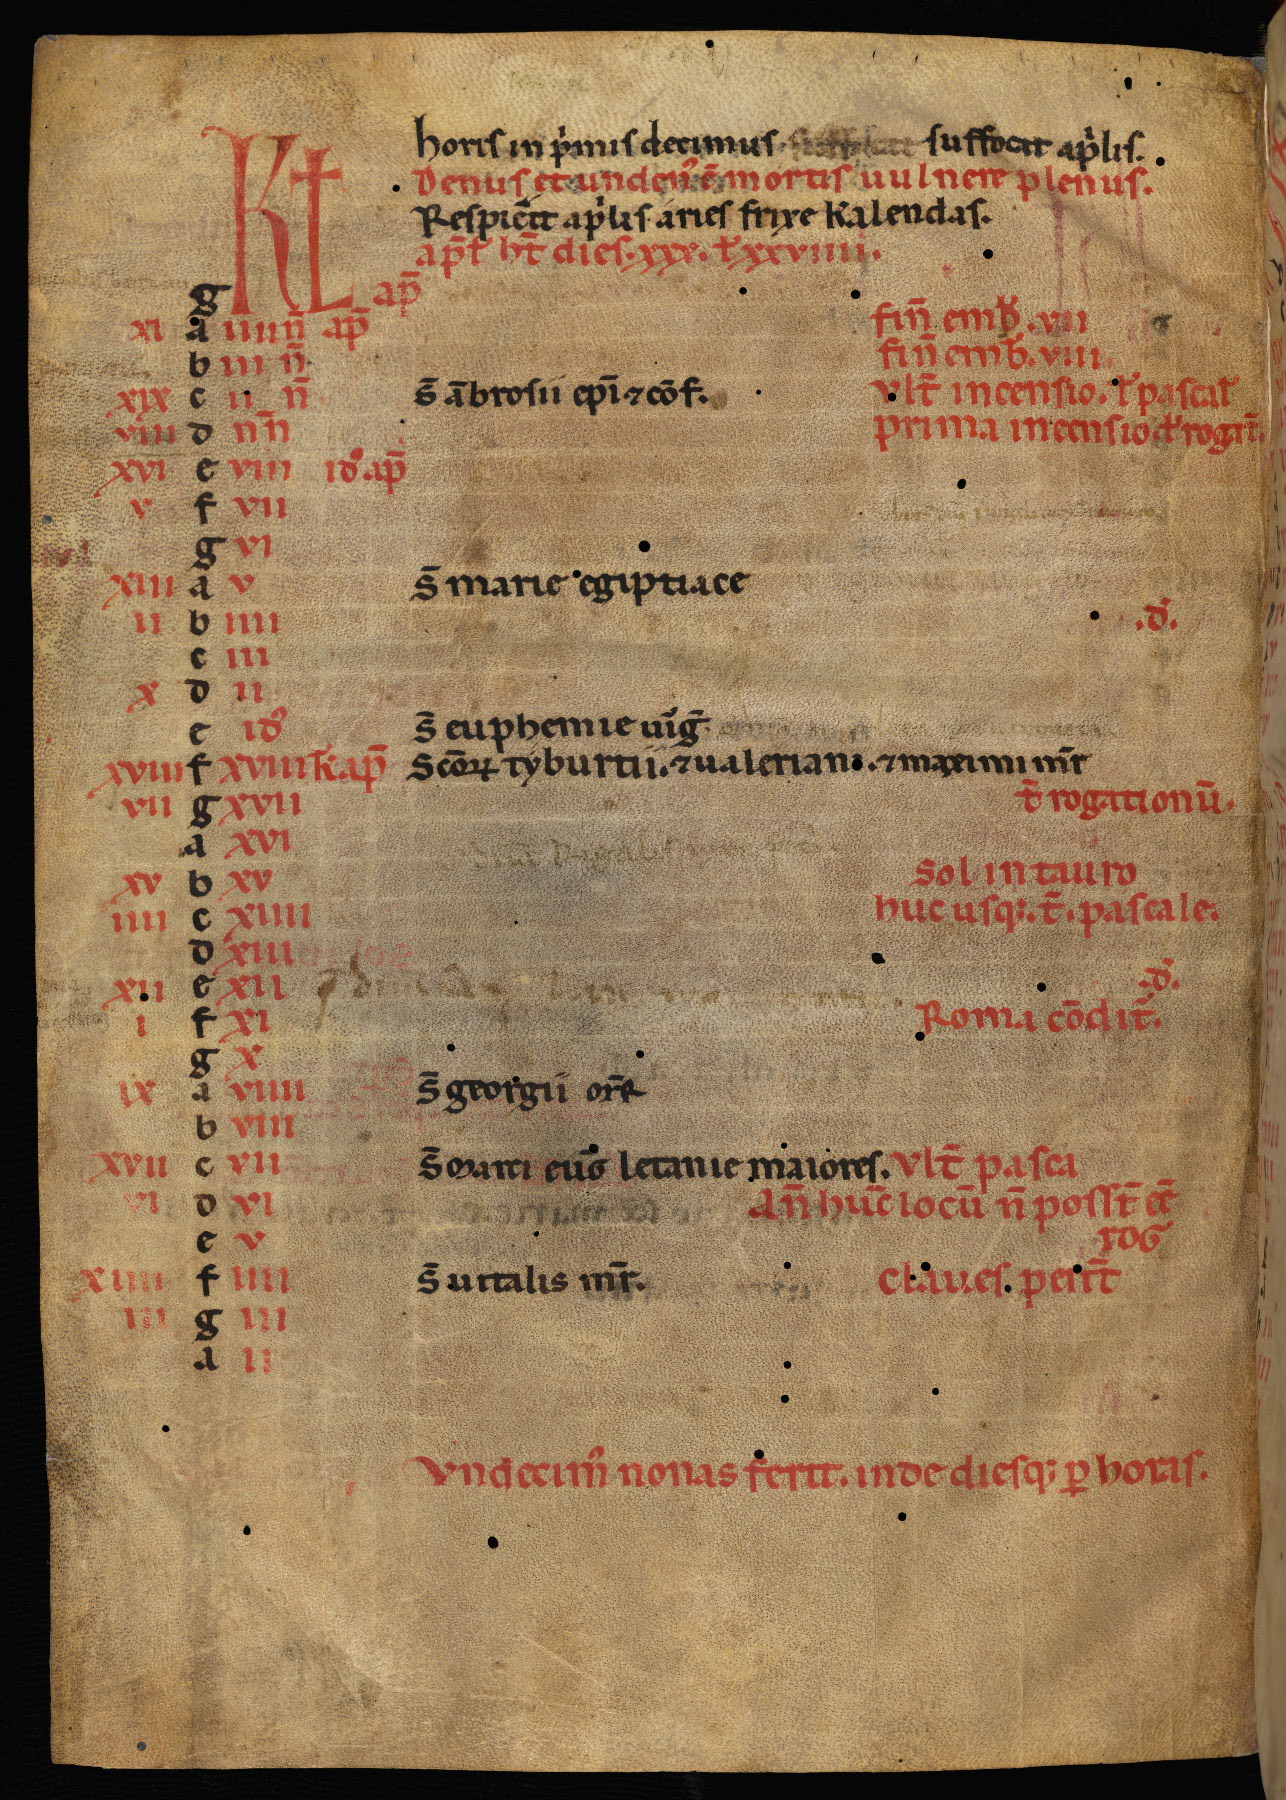 KL
horis in p'mis decimus suffocat ap'lis.
Denus et unden' ē mortis uulnere plenus.
Respicīt ap'lis aries frixe kalendas.
apl' ht̄ dies. xxx. l' xxviiii.
g ap̄
xi a iiii n̄ ap̄ fin̄ emb. vii
b iii n̄ fin̄ emb. viii
xix c ii n̄ s̄ ābrosii ep̄i ⁊ cōf. vlt̄ incensio. l' pascal'
viii d nn̄ prima incensio l' rogat̄.
xvi e viii id' ap̄
v f vii
g vi
xiii a v s̄ marie egiptiace
ii b iiii .d'.
c iii
x d ii
e id' s̄ euphemie uirḡ
xviii f xviii k ap̄ scōꝝ tyburtii. ⁊ ualeriani. ⁊ maximi mr̄
vii g xvii t̄ rogationū.
a xvi
xv b xv Sol in tauro
iiii c xiiii huc usq;. t̄. pascale.
d xiii
xii e xii .d'.
i f xi Roma cōdit̄.
g x
ix a viiii s̄ georgii
b viii
xvii c vii s̄ marci euḡ letanie maiores. vlt̄ pasca
vi d vi An̄ huc̄ locū n̄ posst̄ ee̅
e v rog
xiiii f iiii s̄ uitalis mr̄. claues
iii g iii
a ii
Vndecim' nonas ferit. inde diesq; ꝑ horas.